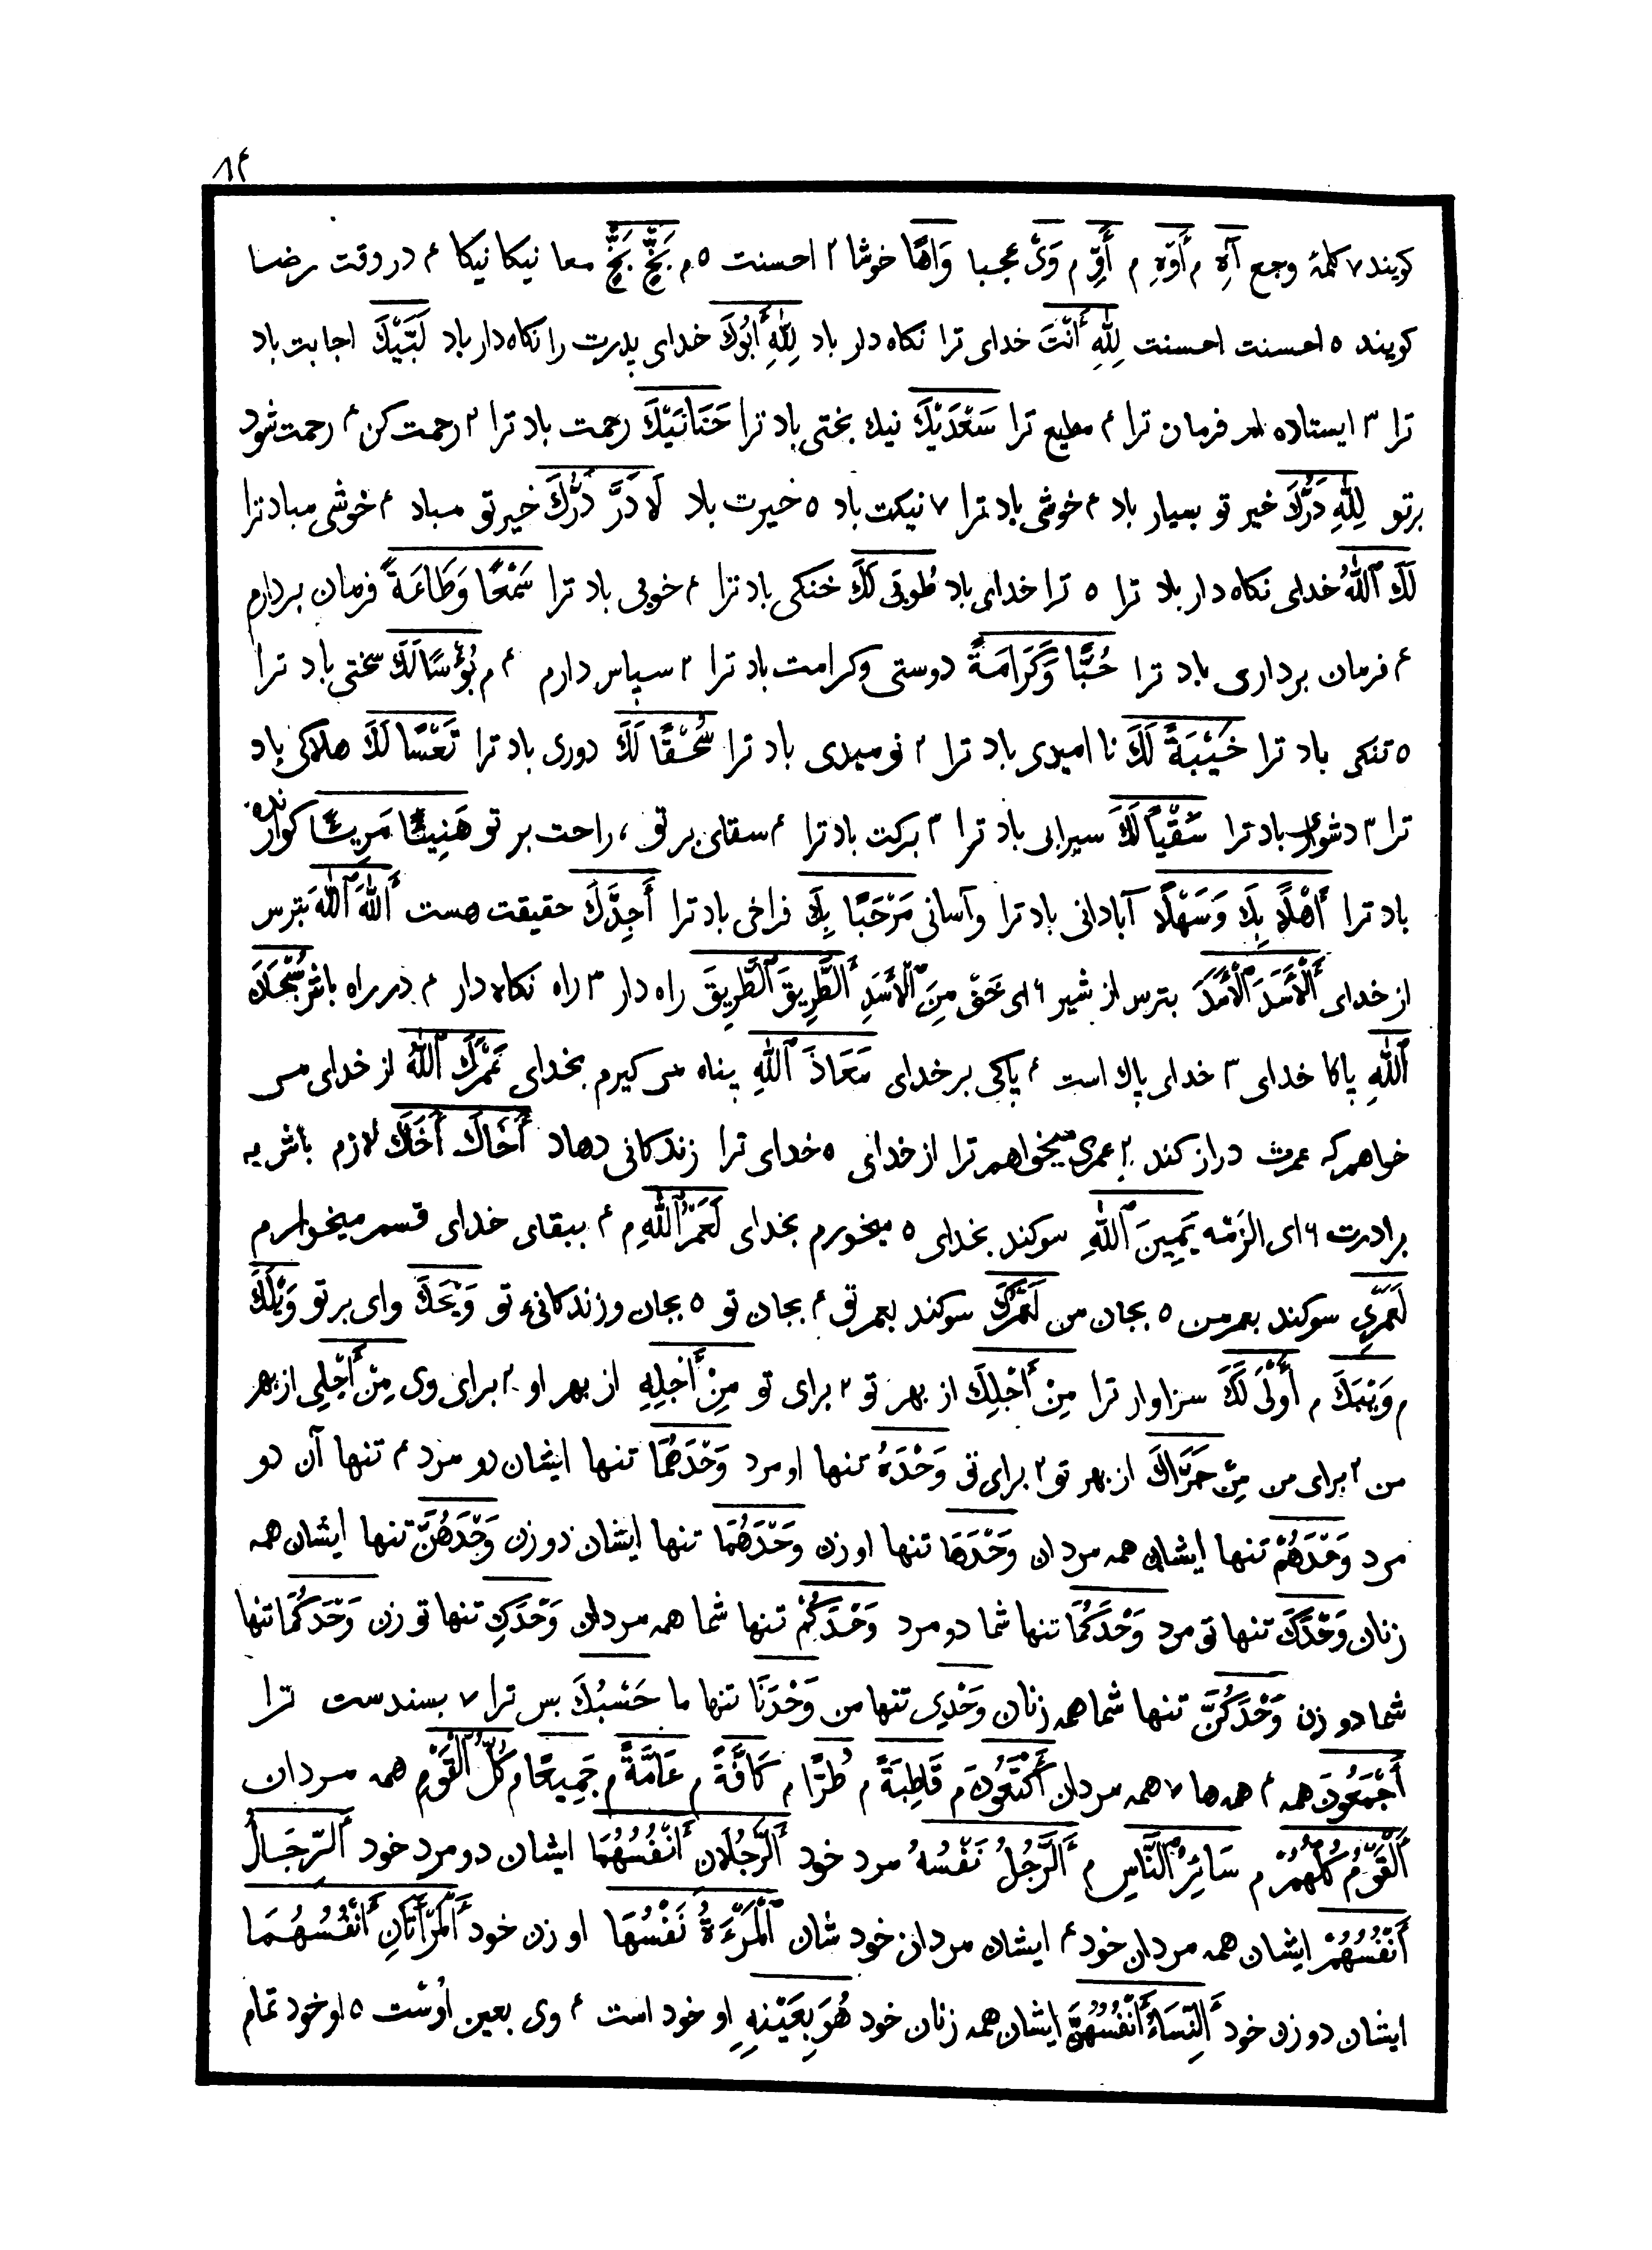 ۸۴
کویند ۷ کلمهٔ وجع آهِ م أَوَّهِ م أُفٍّ م وَیْ عجبا وَاهًا خوشا ۲ احسنت ۵ م بَخٍّ بَخٍّ معا نیکا نیکا ۴ در وقت رضا
کویند ۵ احسنت احسنت لِلّٰهِ أَنْتَ خدای ترا نکاه دار باد لِلّٰهِ أَبُوكَ خدای پدرت را نکاه دار باد لَبَّيْكَ اجابت باد
ترا ۳ ایستاده ام فرمان ترا ۴ مطیع ترا سَعْدَيْكَ نیك بختی باد ترا حَنَانَيْكَ رحمت باد ترا ۲ رحمت کن ۴ رحمت شود
برتو لِلّٰهِ دَرُّكَ خیر تو بسیار باد ۴ خوشی باد ترا ۷ نیکت باد ۵ خیرت باد لَا دَرَّ دَرُّكَ خیر تو مباد ۴ خوشی مباد ترا
لَكَ ٱللّٰهُ خدای نکاه دار باد ترا ۵ ترا خدای باد طُوبَى لَكَ خنکی باد ترا ۴ خوبی باد ترا سَمْعًا وَطَاعَةً فرمان بردارم
۴ فرمان برداری باد ترا حُبًّا وَكَرَامَةً دوستی وکرامت باد ترا ۲ سپاس دارم ۴ م بُؤْسًا لَكَ سختی باد ترا
۵ تنکی باد ترا خَيْبَةً لَكَ نا امیدی باد ترا ۲ نومیدی باد ترا سُحْقًا لَكَ دوری باد ترا تَعْسًا لَكَ هلاکی باد
ترا ۳ دشوار باد ترا سَقْيًا لَكَ سیرابی باد ترا ۳ برکت باد ترا ۴ سقای برتو ، راحت بر تو هَنِيئًا مَرِيئًا کوارنده
باد ترا أَهْلًا بِكَ وَسَهْلًا آبادانی باد ترا وآسانی مَرْحَبًا بِكَ فراخی باد ترا أَجِدَّكَ حقیقت هست أَللّٰهَ ٱللّٰهَ بترس
از خدای أَلْأَسَدَ ٱلْأَسَدَ بترس از شیر ۶ ای نَحِّ مِنَ ٱلْأَسَدِ أَلطَّرِيقَ ٱلطَّرِيقَ راه دار ۳ راه نکاه دار ۴ در راه باش سُبْحَانَ
ٱللّٰهِ پاکا خدای ۳ خدای پاك است ۴ پاکی بر خدای مَعَاذَ ٱللّٰهِ پناه می کیرم بخدای عَمْرَكَ ٱللّٰهَ از خدای می
خواهم که عمرت دراز کند ۲ عمری میخواهم ترا از خدای ۵ خدای ترا زندکانی دهاد أَخَاكَ أَخَاكَ لازم باش به
برادرت ۶ ای الزمه يَمِينَ ٱللّٰهِ سوکند بخدای ۵ میخورم بخدای لَعَمْرُ ٱللّٰهِ م ۴ ببقای خدای قسم میخورم
لَعَمْرِي سوکند بعمر من ۵ بجان من لَعَمْرُكَ سوکند بعمر تو ۴ بجان تو ۵ بجان وزندکانیء تو وَيْحَكَ وای بر تو وَيْلَكَ
م وَيْبَكَ م أَوْلَى لَكَ سزاوار ترا مِنْ أَجْلِكَ از بهر تو ۲ برای تو مِنْ أَجْلِهِ از بهر او ۲ برای وی مِنْ أَجْلِي از بهر
من ۲ برای من مِنْ جَرَّاكَ از بهر تو ۲ برای تو وَحْدَهُ تنها او مرد وَحْدَهُمَا تنها ایشان دو مرد ۴ تنها آن دو
مرد وَحْدَهُمْ تنها ایشان همه مردان وَحْدَهَا تنها او زن وَحْدَهُمَا تنها ایشان دو زن وَحْدَهُنَّ تنها ایشان همه
زنان وَحْدَكَ تنها تو مرد وَحْدَكُمَا تنها شما دو مرد وَحْدَكُمْ تنها شما همه مردان وَحْدَكِ تنها تو زن وَحْدَكُمَا تنها
شما دو زن وَحْدَكُنَّ تنها شما همه زنان وَحْدِي تنها من وَحْدَنَا تنها ما حَسْبُكَ بس ترا ۷ بسندست ترا
أَجْمَعُونَ همه ۴ همه ها ۷ همه مردان أَكْتَعُونَ م قَاطِبَةً م طُرًّا م كَافَّةً م عَامَّةً م جَمِيعًا م كُلُّ ٱلْقَوْمِ همه مردان
أَلْقَوْمُ كُلُّهُمْ م سَائِرُ ٱلنَّاسِ م أَلرَّجُلُ نَفْسُهُ مرد خود أَلرَّجُلَانِ أَنْفُسُهُمَا ایشان دو مرد خود أَلرِّجَالُ
أَنْفُسُهُمْ ایشان همه مردان خود ۴ ایشان مردان خود شان أَلْمَرْءَةُ نَفْسُهَا او زن خود أَلْمَرْأَتَانِ أَنْفُسُهُمَا
ایشان دو زن خود أَلنِّسَاءُ أَنْفُسُهُنَّ ایشان همه زنان خود هُوَ بِعَيْنِهِ او خود است ۴ وی بعین اوست ۵ او خود تمام